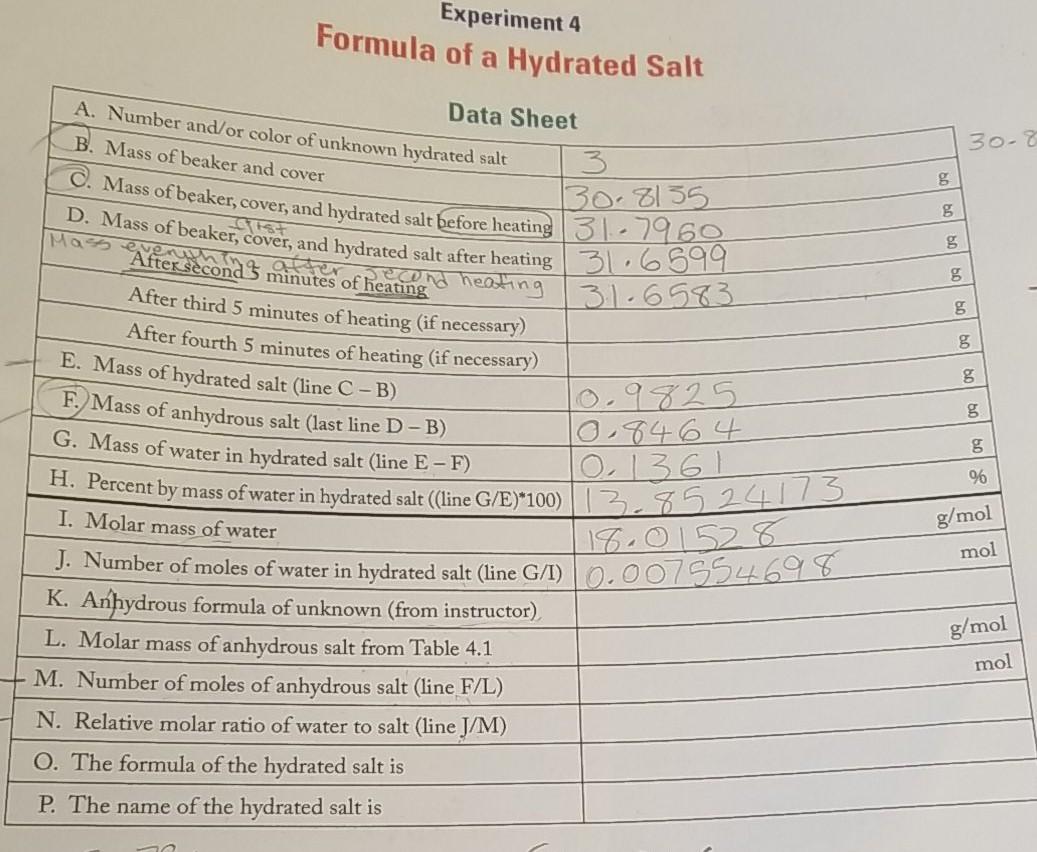 Experiment 4
Formula of a Hydrated Salt
Data Sheet
A. Number and/or color of unknown hydrated salt 3
30-8
B. Mass of beaker and cover 30.8135 g
C. Mass of beaker, cover, and hydrated salt before heating 31.7960 g
first
D. Mass of beaker, cover, and hydrated salt after heating 31.6599 g
Mass everything after second heating
After second 5 minutes of heating 31.6583 g
After third 5 minutes of heating (if necessary) g
After fourth 5 minutes of heating (if necessary) g
E. Mass of hydrated salt (line C – B) 0.9825 g
F. Mass of anhydrous salt (last line D – B) 0.8464 g
G. Mass of water in hydrated salt (line E – F) 0.1361 g
H. Percent by mass of water in hydrated salt ((line G/E)*100) 13.8524173 %
I. Molar mass of water 18.01528 g/mol
J. Number of moles of water in hydrated salt (line G/I) 0.007554698 mol
K. Anhydrous formula of unknown (from instructor)
L. Molar mass of anhydrous salt from Table 4.1 g/mol
M. Number of moles of anhydrous salt (line F/L) mol
N. Relative molar ratio of water to salt (line J/M)
O. The formula of the hydrated salt is
P. The name of the hydrated salt is